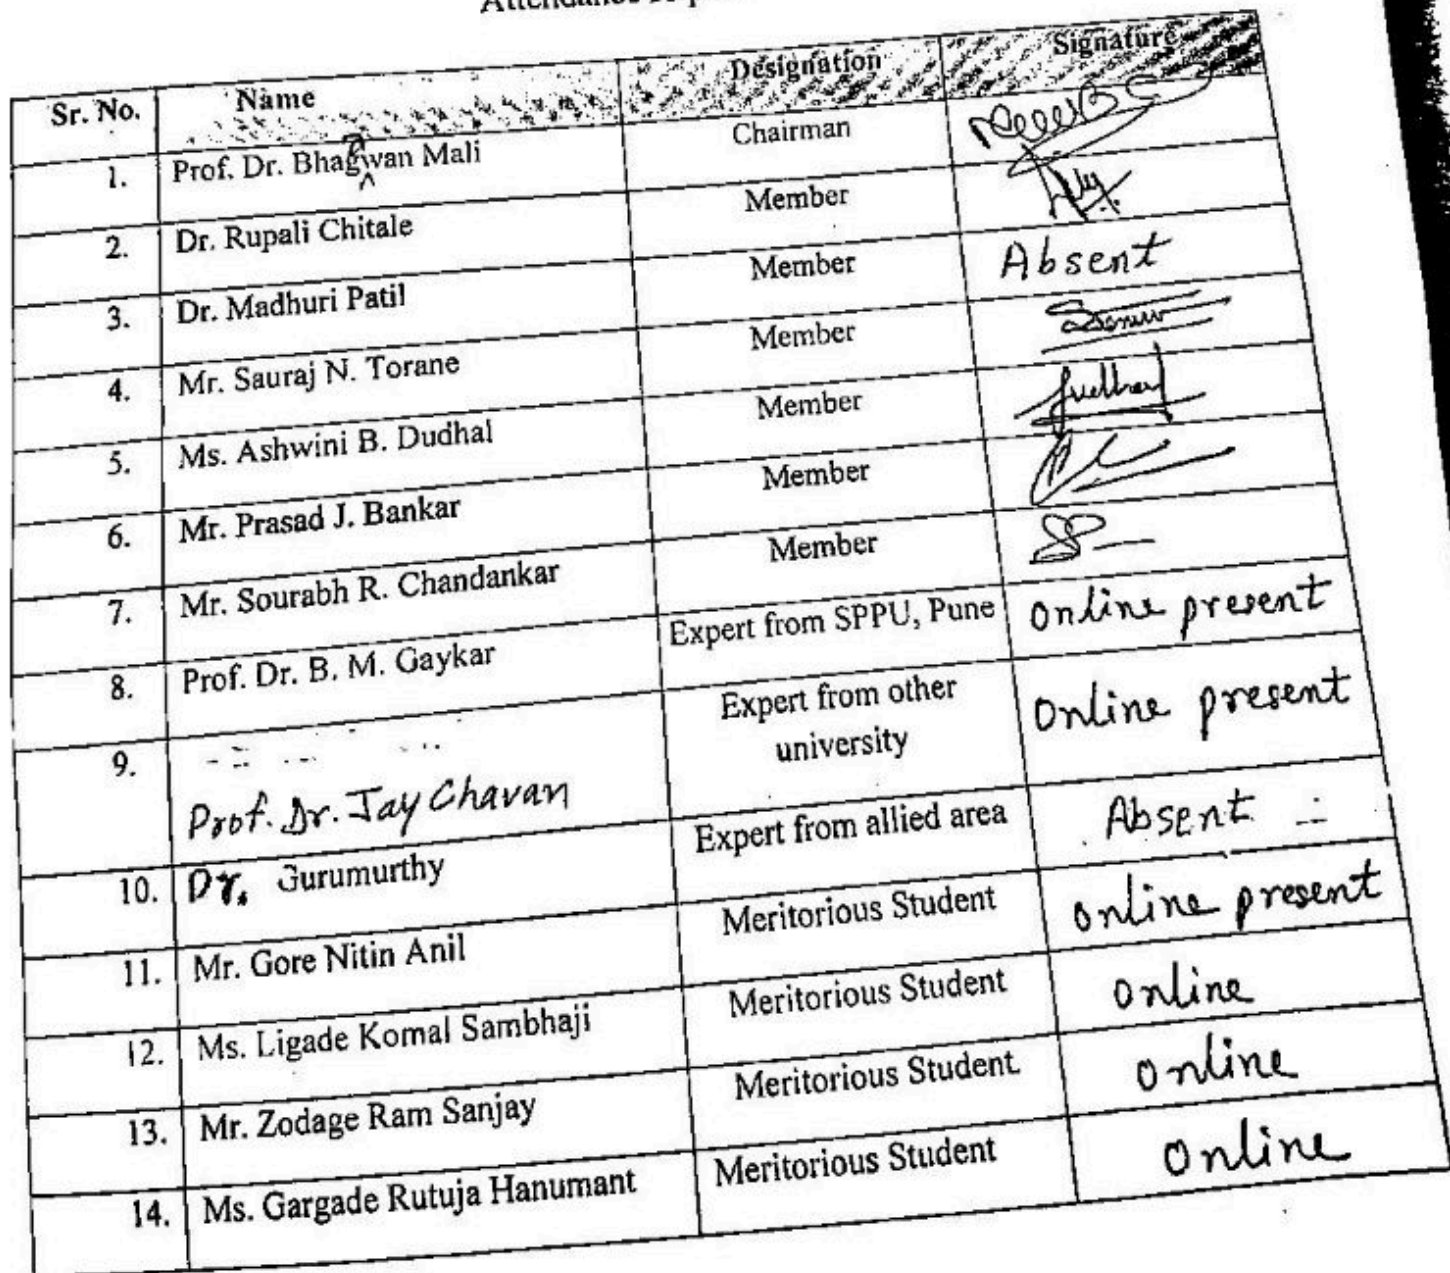 Sr. No. Name Designation Signature
1. Prof. Dr. Bhagawan Mali Chairman
2. Dr. Rupali Chitale Member
3. Dr. Madhuri Patil Member Absent
4. Mr. Sauraj N. Torane Member
5. Ms. Ashwini B. Dudhal Member
6. Mr. Prasad J. Bankar Member
7. Mr. Sourabh R. Chandankar Member
8. Prof. Dr. B. M. Gaykar Expert from SPPU, Pune Online present
9. Prof. Dr. Jay Chavan Expert from other
university Online present
10. Dr. Gurumurthy Expert from allied area Absent
11. Mr. Gore Nitin Anil Meritorious Student Online present
12. Ms. Ligade Komal Sambhaji Meritorious Student Online
13. Mr. Zodage Ram Sanjay Meritorious Student Online
14. Ms. Gargade Rutuja Hanumant Meritorious Student Online